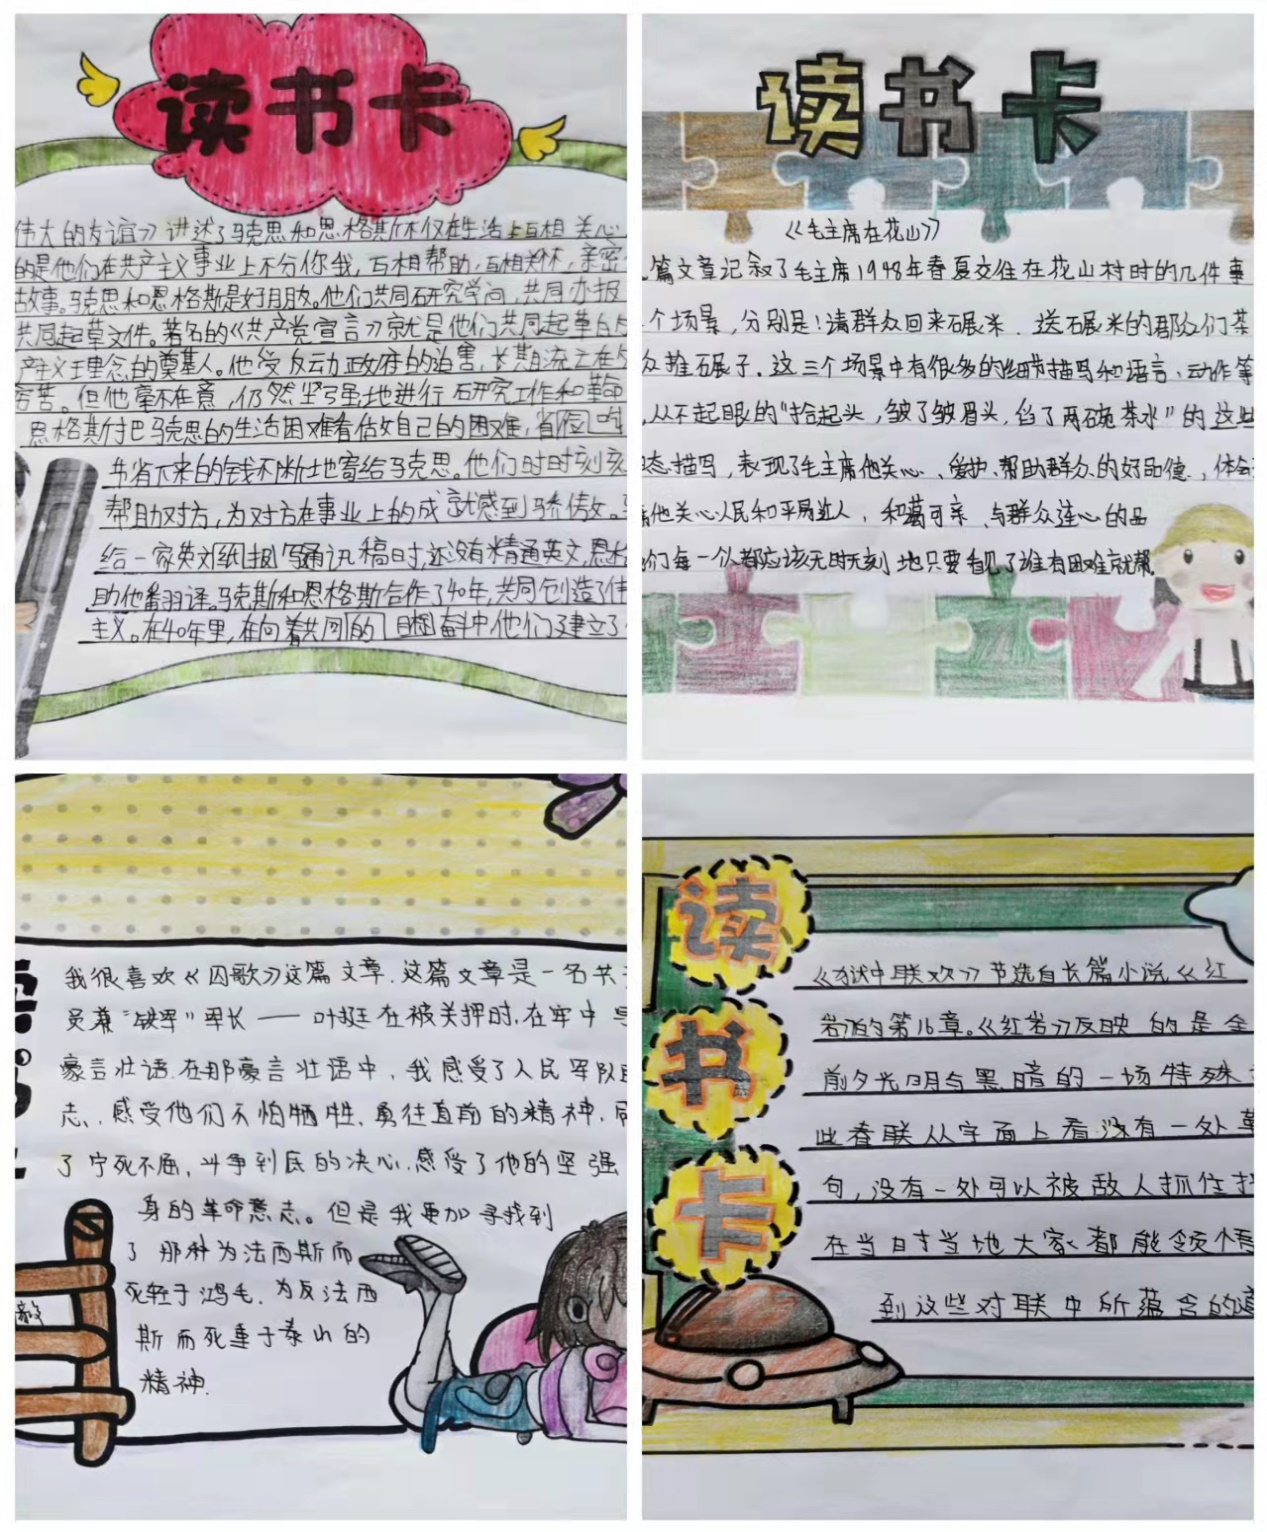 读书卡
伟大的友谊》讲述了马克思和恩格斯不仅在生活上互相关心
的是他们在共产主义事业上不分你我,互相帮助,互相关怀,亲密
故事。马克思和恩格斯是好朋友。他们共同研究学问,共同办报
共同起草文件。著名的《共产党宣言》就是他们共同起草的
产主义理念的奠基人。他受反动政府的迫害,长期流亡在
穷苦。但他毫不在意,仍然坚强地进行研究工作和革命
恩格斯把马克思的生活困难看作自己的困难,省
节省下来的钱不断地寄给马克思。他们时时刻刻
帮助对方,为对方在事业上的成就感到骄傲。
给一家英文纸报写通讯稿时,还没有精通英文,恩格
助他翻译。马克斯和恩格斯合作了40年,共同创造了伟
主义。在40年里,在向着共同的目标奋斗中,他们建立了
读书卡
《毛主席在花山》
篇文章记叙了毛主席1948年春夏交住在花山村时的几件事
个场景,分别是!请群众回来碾米、送碾米的群众们茶
众推碾子。这三个场景中有很多的细节描写和语言、动作等
从不起眼的“抬起头,皱了皱眉头,舀了两碗茶水”的这些
态描写,表现了毛主席他关心、爱护、帮助群众的好品德,体会
他关心人民和平易近人,和蔼可亲、与群众连心的品
们每一个人都应该无时无刻地只要看见了谁有困难就帮。
我很喜欢《囚歌》这篇文章.这篇文章是一名共
员兼“铁军”军长——叶挺在被关押时.在牢中
豪言壮语.在那豪言壮语中,我感受了人民军队
志.感受他们不怕牺牲.勇往直前的精神.
了宁死不屈,斗争到底的决心.感受了他的坚强
身的革命意志。但是我更加寻找到
了那种为法西斯而
死轻于鸿毛.为反法西
斯而死重于泰山的
精神.
读书卡
《狱中联欢》节选自长篇小说《红
岩》的第16章。《红岩》反映的是全
前夕光明与黑暗的一场特殊
此春联从字面上看没有一处革
句,没有一处可以被敌人抓住
在当时当地大家都能领悟
到这些对联中所蕴含的